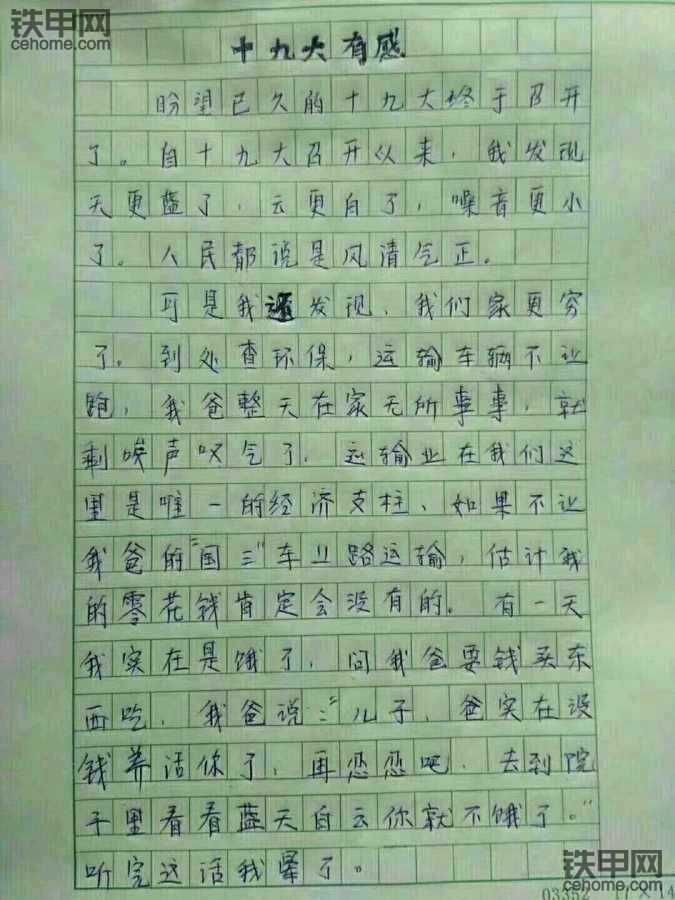 铁甲网
cehome.com
十九大有感
盼望已久的十九大终于召开
了。自十九大召开以来，我发现
天更蓝了，云更白了，噪音更小
了。人民都说是风清气正。
可是我还发现，我们家更穷
了。到处查环保，运输车辆不让
跑，我爸整天在家无所事事，就
剩唉声叹气了，运输业在我们这
里是唯一的经济支柱，如果不让
我爸的"国三"车上路运输，估计我
的零花钱肯定会没有的。有一天
我实在是饿了，问我爸要钱买东
西吃，我爸说："儿子，爸实在没
钱养活你了，再忍忍吧，去到院
子里看看蓝天白云你就不饿了。"
听完这话我晕了。
铁甲网
cehome.com
03352 17×14